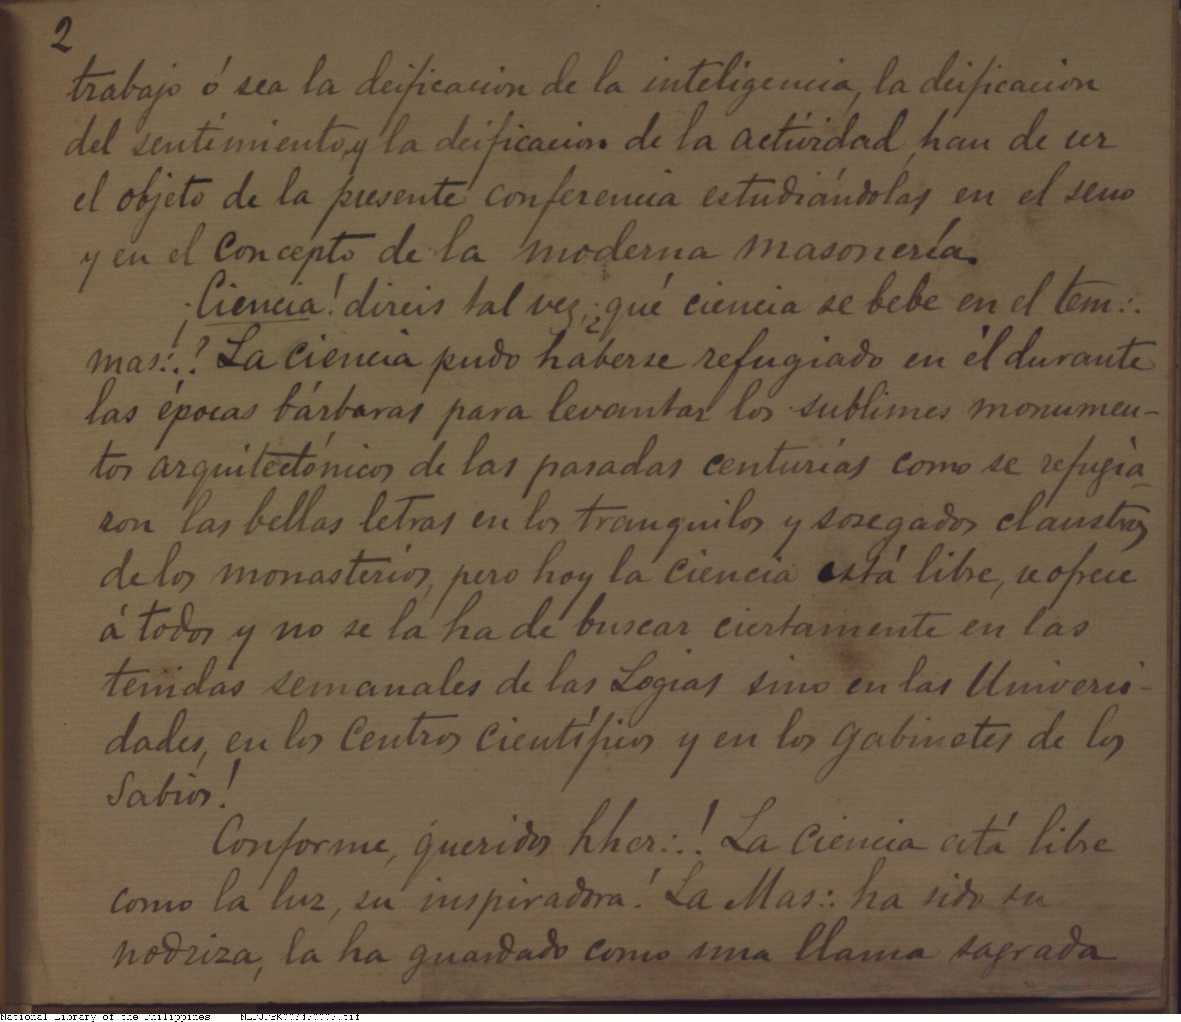 2
trabajo ó sea la deificacion de la inteligencia, la deificacion
del sentimiento, y la deificacion de la actividad, han de ser
el objeto de la presente conferencia estudiándolas en el seno
y en el concepto de la moderna masonería.
¡Ciencia! direis tal vez, ¿qué ciencia se bebe en el tem∴
mas∴? La ciencia pudo haberse refugiado en él durante
las épocas bárbaras para levantar los sublimes monumen-
tos arquitectónicos de las pasadas centurias como se refugia-
ron las bellas letras en los tranquilos y sosegados claustros
de los monasterios, pero hoy la ciencia está libre, se ofrece
á todos y no se la ha de buscar ciertamente en las
tenidas semanales de las Logias sino en las Universi-
dades, en los centros científicos y en los gabinetes de los
Sabios!
Conforme, queridos hher∴! La ciencia está libre
como la luz, su inspiradora! La Mas∴ ha sido su
nodriza, la ha guardado como una llama sagrada
National Library of the Philippines